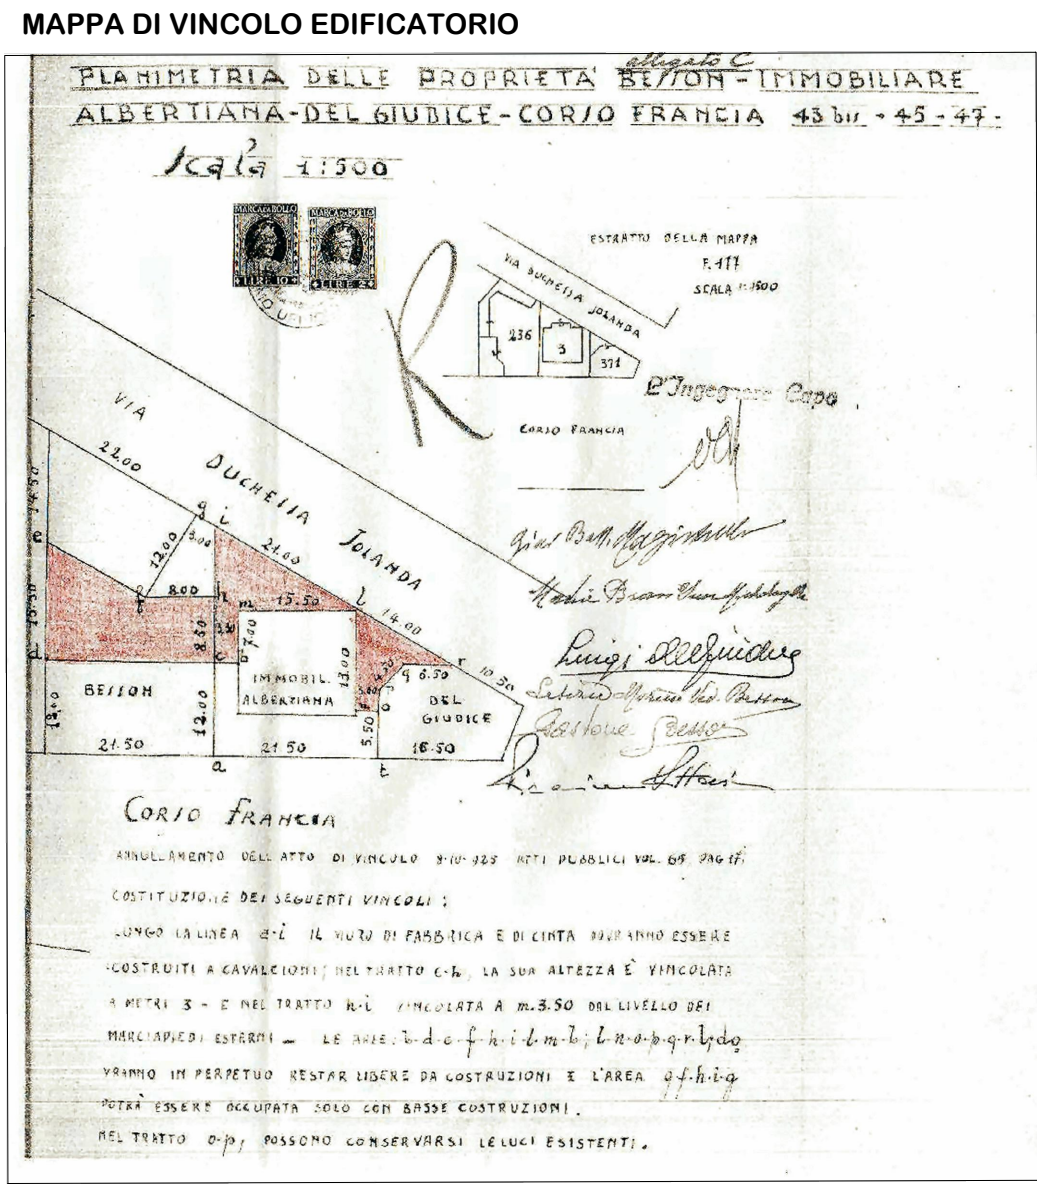 MAPPA DI VINCOLO EDIFICATORIO
allegato C
PLANIMETRIA DELLE PROPRIETA' BESSON - IMMOBILIARE
ALBERTIANA - DEL GIUDICE - CORSO FRANCIA 43 bis - 45 - 47 -
Scala 1:500
MARCA DA BOLLO MARCA DA BOLLO
LIRE 10 LIRE 2
ESTRATTO DELLA MAPPA
F. 177
SCALA 1:1500
VIA DUCHESSA JOLANDA
236
3
371
CORSO FRANCIA
L'Ingegnere Capo
VIA DUCHESSA JOLANDA
22.00
g i
3.00
21.00
14.50
e
12.00
f
8.00
h
m
15.50
l
14.00
15.50
8.50
3.50
7.00
d
c
b
13.00
q 6.50
r
10.50
BESSON
IMMOBIL.
ALBERTIANA
DEL
GIUDICE
12.00
12.00
5.50
21.50
21.50
16.50
a
t
Luigi Del Giudice
Gastone Besson
CORSO FRANCIA
ANNULLAMENTO DELL'ATTO DI VINCOLO 9-10-925 ATTI PUBBLICI VOL. 65 PAG 17.
COSTITUZIONE DEI SEGUENTI VINCOLI:
LUNGO LA LINEA a-i IL MURO DI FABBRICA E DI CINTA DOVRANNO ESSERE
COSTRUITI A CAVALCIONI; NEL TRATTO c-h, LA SUA ALTEZZA È VINCOLATA
A METRI 3 - E NEL TRATTO h-i VINCOLATA A m. 3.50 DAL LIVELLO DEI
MARCIAPIEDI ESTERNI - LE AREE: b-d-e-f-h-i-l-m-b; l-n-o-p-q-r-l; do
VRANNO IN PERPETUO RESTAR LIBERE DA COSTRUZIONI E L'AREA g-f-h-i-g
POTRÀ ESSERE OCCUPATA SOLO CON BASSE COSTRUZIONI.
NEL TRATTO o-p, POSSONO CONSERVARSI LE LUCI ESISTENTI.